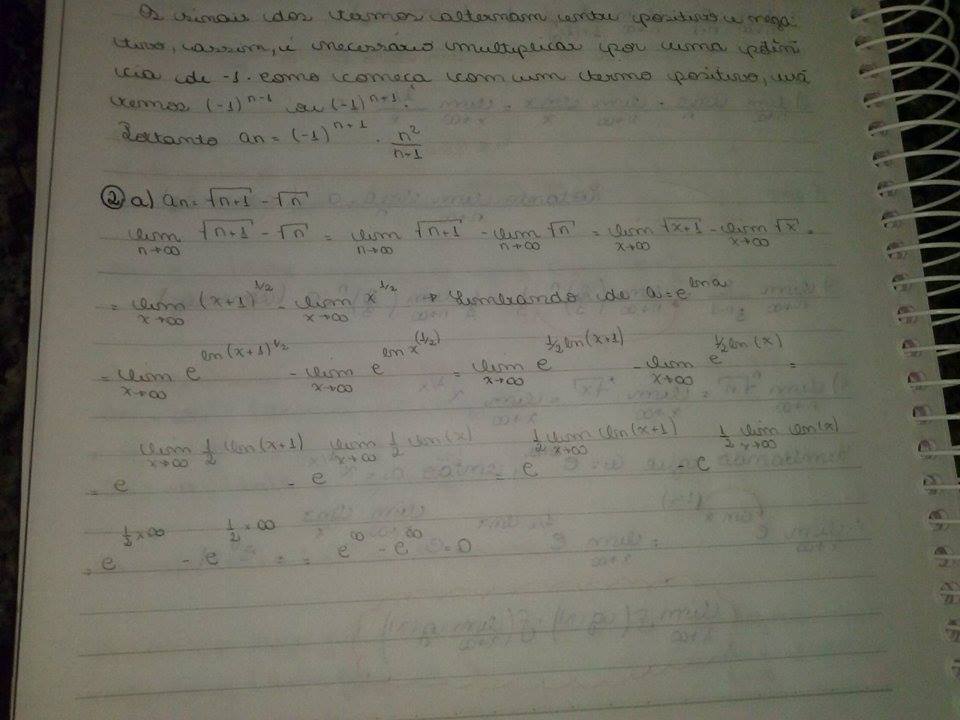 Os sinais dos termos alternam entre positivo e nega-
tivo, assim, é necessário multiplicar por uma potên
cia de -1. como começa com um termo positivo, usa
remos (-1)^{n-1} ou (-1)^{n+1}.
Portanto an = (-1)^{n+1} . n²/n+1
② a) an = √n+1 - √n
lim n→∞ √n+1 - √n = lim n→∞ √n+1 - lim n→∞ √n = lim x→∞ √x+1 - lim x→∞ √x =
= lim x→∞ (x+1)^{1/2} - lim x→∞ x^{1/2} → Lembrando de a = e^{ln a}
= lim x→∞ e^{ln(x+1)^{1/2}} - lim x→∞ e^{ln x^{(1/2)}} = lim x→∞ e^{1/2 ln(x+1)} - lim x→∞ e^{1/2 ln(x)} =
= e^{lim x→∞ 1/2 ln(x+1)} - e^{lim x→∞ 1/2 ln(x)} = e^{1/2 lim x→∞ ln(x+1)} - e^{1/2 lim x→∞ ln(x)}
= e^{1/2 × ∞} - e^{1/2 × ∞} = = e^∞ - e^∞ = 0